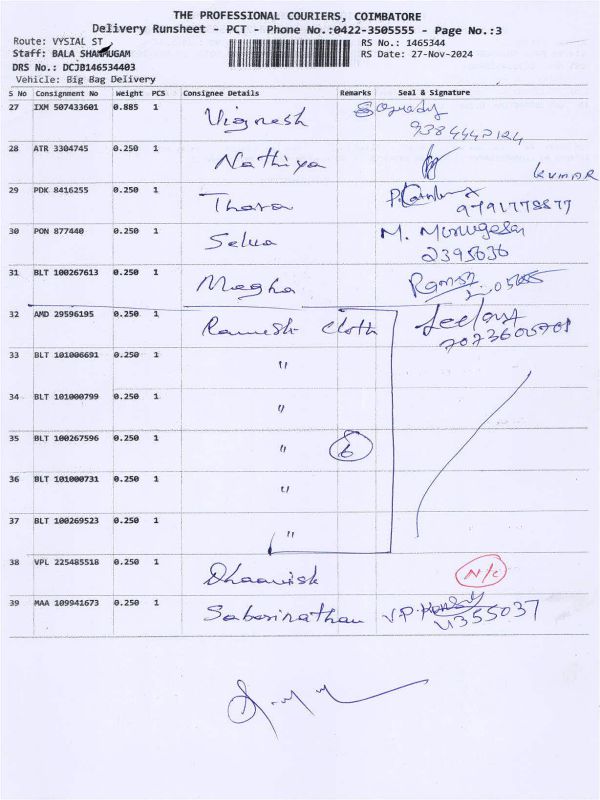 THE PROFESSIONAL COURIERS, COIMBATORE
Delivery Runsheet - PCT - Phone No.:0422-3505555 - Page No.:3
Route: VYSIAL ST RS No.: 1465344
Staff: BALA SHANMUGAM RS Date: 27-Nov-2024
DRS No.: DCJB146534403
Vehicle: Big Bag Delivery
S No Consignment No Weight PCS Consignee Details Remarks Seal & Signature
27 IXM 507433601 0.885 1 Vignesh
28 ATR 3304745 0.250 1 Nathiya KUMAR
29 PDK 8416255 0.250 1 Thara
9791778877
30 PON 877440 0.250 1 Selva M. Murugesan
2395636
31 BLT 100267613 0.250 1 Megha
32 AMD 29596195 0.250 1 Ramesh cloth
33 BLT 101006691 0.250 1 "
34 BLT 101000799 0.250 1 "
35 BLT 100267596 0.250 1 " 6
36 BLT 101000731 0.250 1 "
37 BLT 100269523 0.250 1 "
38 VPL 225485518 0.250 1 Dhaawish N/c
39 MAA 109941673 0.250 1 Sabarinathan V.P.
4355037